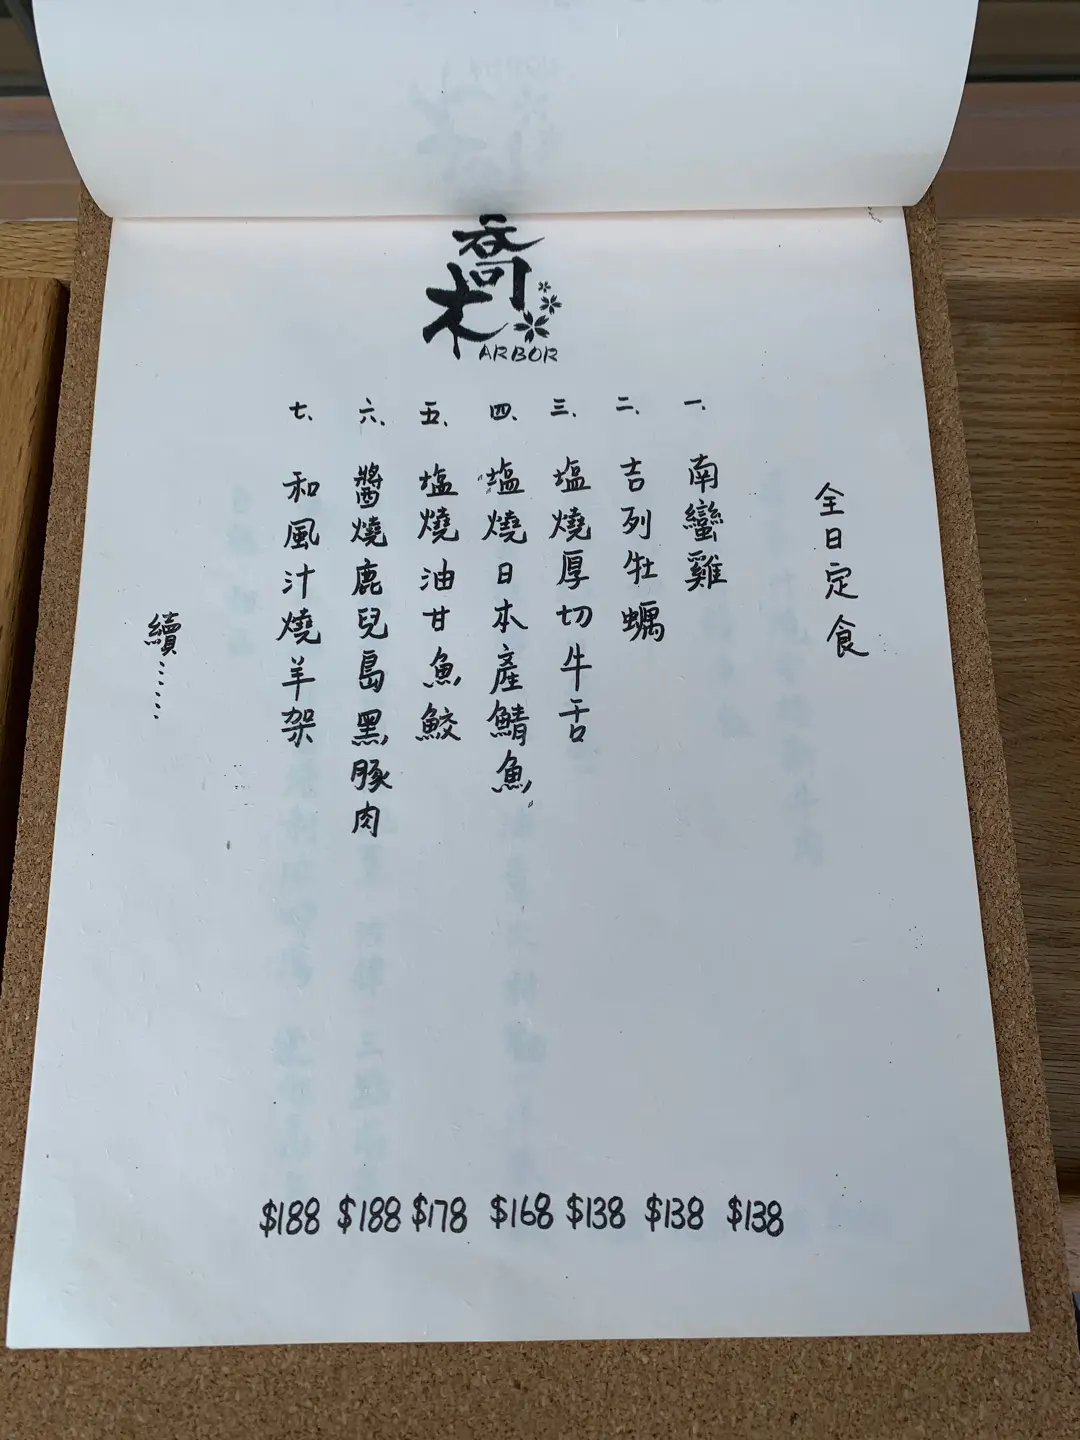 喬木
ARBOR
全日定食
一、南蠻雞 $138
二、吉列牡蠣 $138
三、塩燒厚切牛舌 $138
四、"塩燒日本產鯖魚" $168
五、塩燒油甘魚鮫 $178
六、醬燒鹿兒島黑豚肉 $188
七、和風汁燒羊架 $188
續……